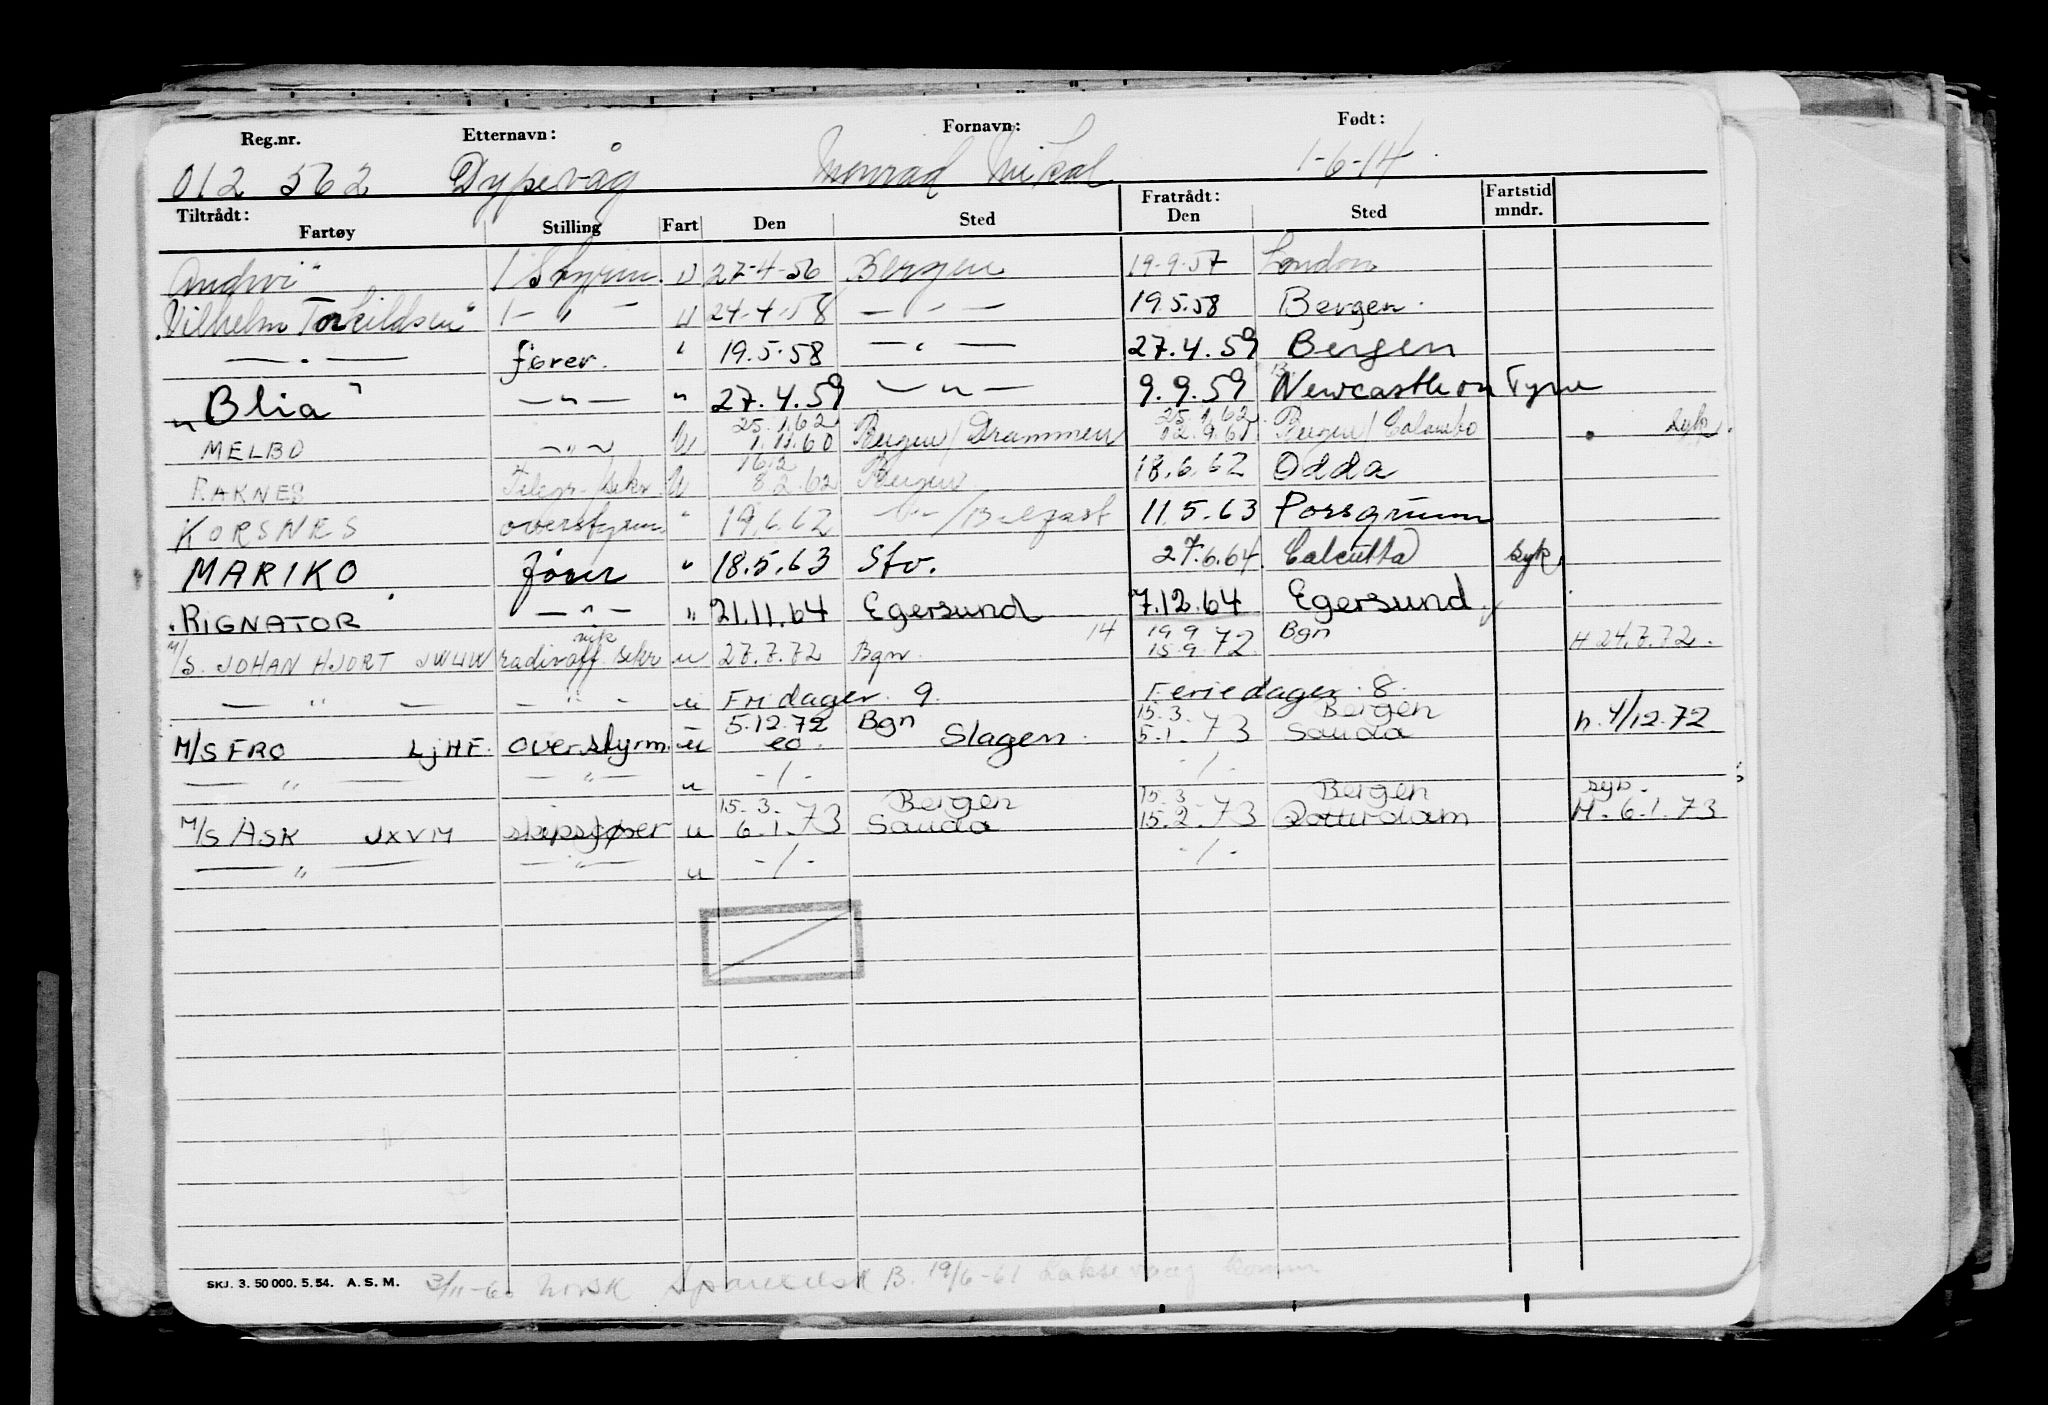 Reg.nr. Etternavn: Fornavn: Født:
012 562 Dypevåg Monrad Mikal 1-6-14
Tiltrådt: Fratrådt: Fartstid
Fartøy Stilling Fart Den Sted Den Sted mndr.
Andvi" 1 Styrm. U 27-4-56 Bergen 19-9-57 London
"Vilhelm Torkildsen" 1 — " — U 24-4-58 — " — 19.5.58 Bergen.
— " — fører. " 19.5.58 — " — 27.4.59 Bergen
"Blia" — " — " 27.4.59 — " — 9.9.59 Newcastle on Tyne
25.1.62 25.1.62
MELBO — " — U 1.11.60 Bergen/Drammen 12.9.61 Bergen/Colombo Syk.
16.2
RAKNES Telegr./sekr U 8.2.62 Bergen 18.6.62 Odda
KORSNES overstyrm " 19.6.62 — " — /Belfast 11.5.63 Porsgrunn
MARIKO fører " 18.5.63 Stv. 27.6.64. Calcutta syk
RIGNATOR — " — " 21.11.64 Egersund 7.12.64 Egersund
14 19.9
M/S. JOHAN HJORT JWUW radiooff. sekr u 27.7.72 Bgn. 15.9.72 Bgn H 24.7.72.
— " — — " — u Fridager. 9. Feriedager. 8.
5.12.72 Bgn 15.3. Bergen
M/S FRO LJHF. overstyrm. u eo. Slagen. 5.1.73 Sauda h. 4/12.72
— " — — " — u -/- -/-
15.3. Bergen 15.3. Bergen
M/S ASK JXVM skipsfører u 6.1.73 Sauda 15.2.73 Rotterdam H. 6.1.73
— " — — " — u -/- -/-
SKJ. 3. 50 000. 5. 54. A. S. M. 3/11-60 norsk B. 19/6-61 Laksevaag